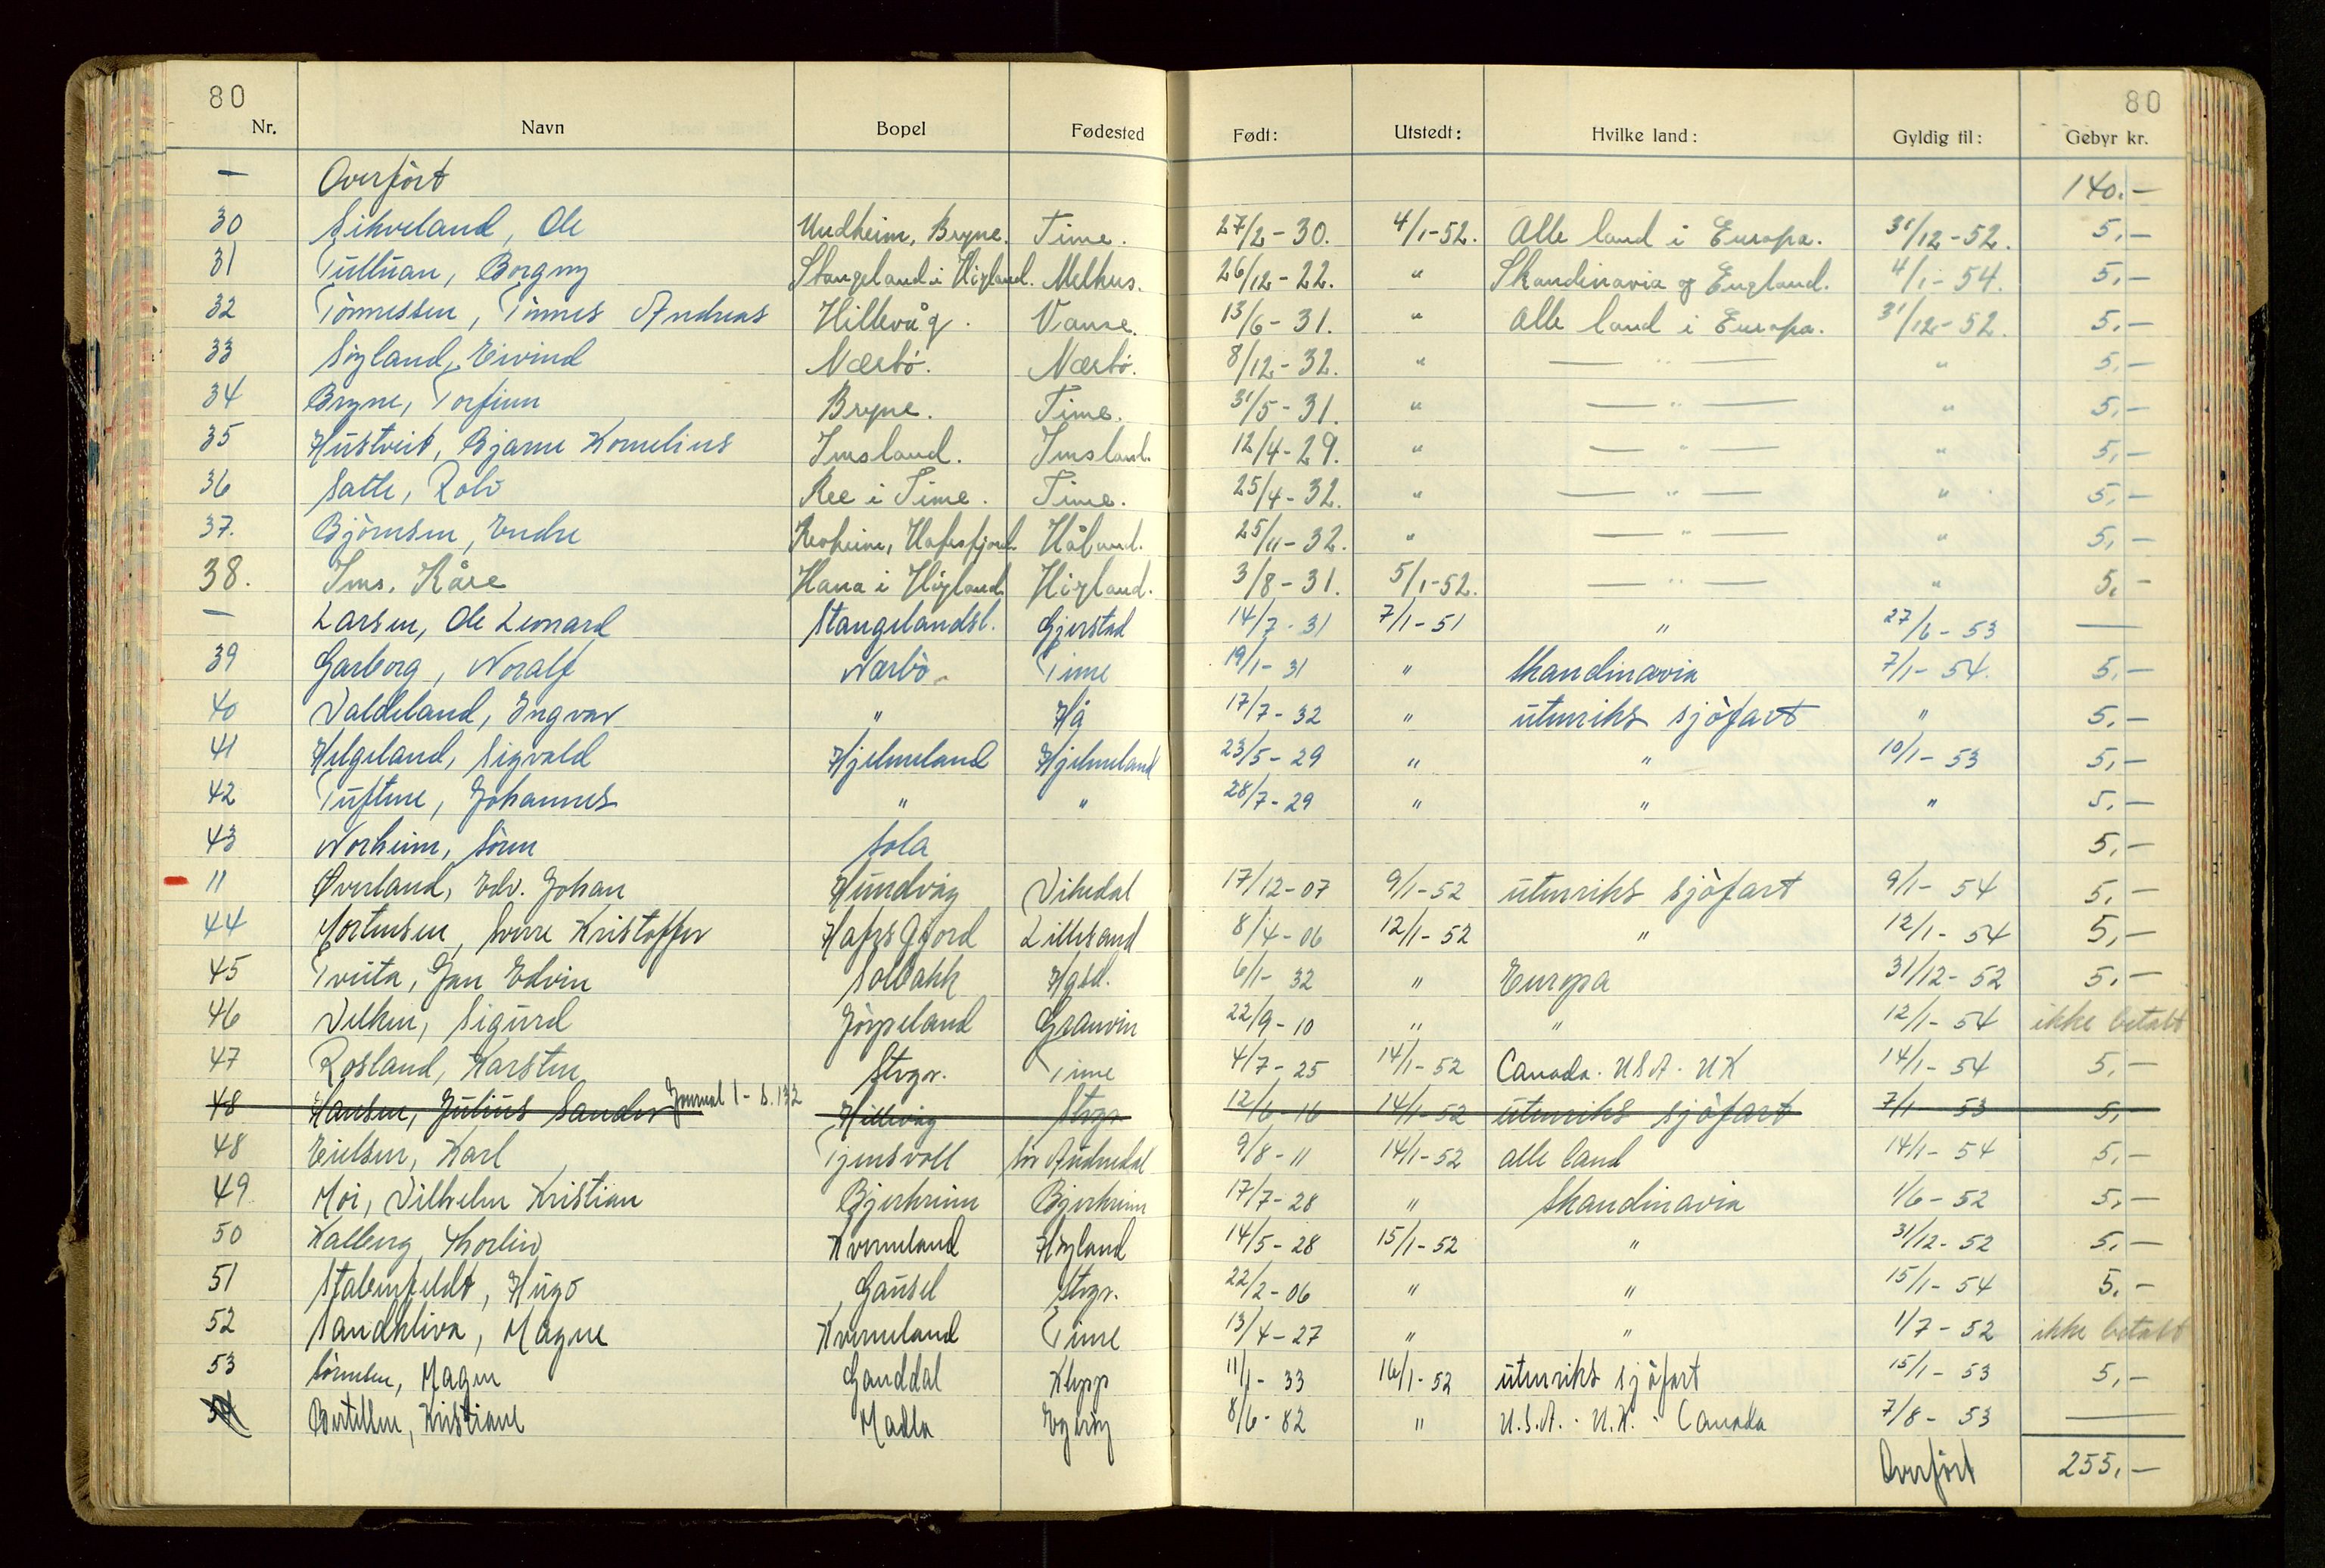 80 80
Nr. Navn Bopel Fødested Født: Utstedt: Hvilke land: Gyldig til: Gebyr kr.
— Overført 140.—
30 Sikveland, Ole Undheim, Bryne. Time. 27/2-30. 4/1-52. Alle land i Europa. 31/12-52. 5,—
31 Tulluan, Borgny Stangeland i Høyland. Melhus. 26/12-22. " Skandinavia og England. 4/1-54. 5,—
32 Tönnessen, Tönnes Andreas Hillevåg. Vanse. 13/6-31. " Alle land i Europa. 31/12-52. 5,—
33 Söyland, Eivind Nærbö. Nærbö. 8/12-32. " — " — " 5,—
34 Bryne, Torfinn Bryne. Time. 31/5-31. " — " — " 5,—
35 Hustveit, Bjarne Kornelius Imsland. Imsland. 12/4-29. " — " — " 5,—
36 Satte, Rolv Ree i Time. Time. 25/4-32. " — " — " 5,—
37. Björnsen, Endre Hafrsfjord. Håland. 25/11-32. " — " — " 5,—
38. Ims, Kåre Hana i Höyland. Höyland. 3/8-31. 5/1-52. — " — " 5,-
— Larsen, Ole Leonard Stangelandsl. Gjerstad 14/7-31 7/1-51 " 27/6-53 —
39 Garborg, Noralf Nærbö. Time 19/1-31 " Skandinavia 7/1-54. 5,—
40 Valdeland, Ingvar " Hå 17/7-32 " utenriks sjöfart " 5,—
41 Helgeland, Sigvald Hjelmeland Hjelmeland 23/5-29 " " 10/1-53 5,—
42 Tuftene, Johannes " " 28/7-29 " " " 5,—
43 Norheim, Sören Sola 5,—
11 Øverland, Edv. Johan Hundvåg Vikedal 17/12-07 9/1-52 utenriks sjöfart 9/1-54 5,—
44 Mortensen, Sverre Kristoffer Hafrsfjord Lillesand 8/4-06 12/1-52 " 12/1-54 5,—
45 Tveita, Jan Edvin Solbakk Hgsd. 6/1-32 " Europa 31/12-52 5,—
46 Velken, Sigurd Jörpeland Granvin 22/9-10 " " 12/1-54 ikke betalt
47 Rosland, Karsten Stvgr. Time 4/7-25 14/1-52 Canada. USA. UK 14/1-54 5,—
48 Hansen, Julius Sander Journal 1-s.132 Hillevåg Stvgr 12/6-16 14/1-52 utenriks sjöfart 7/1-53 5,-
48 Eielsen, Karl Tjensvoll Sör Audnedal 9/8-11 14/1-52 alle land 14/1-54 5,—
49 Moi, Vilhelm Kristian Bjerkreim Bjerkreim 17/7-28 " Skandinavia 1/6-52 5,—
50 Kalberg, Thorleiv Kverneland Höyland 14/5-28 15/1-52 " 31/12-52 5,—
51 Stabenfeldt, Hugo Gausel Stvgr. 22/2-06 " " 15/1-54 5,—
52 Sandkleiva, Magne Kverneland Time 13/4-27 " " 1/7-52 ikke betalt
53 Sörensen, Magen Ganddal Klepp 11/1-33 16/1-52 utenriks sjöfart 15/1-53 5,—
54 Bertelsen, Kristiane Madla 8/6-82 " U.S.A. - U.K. - Canada 7/8-53 —
Overført 255,—